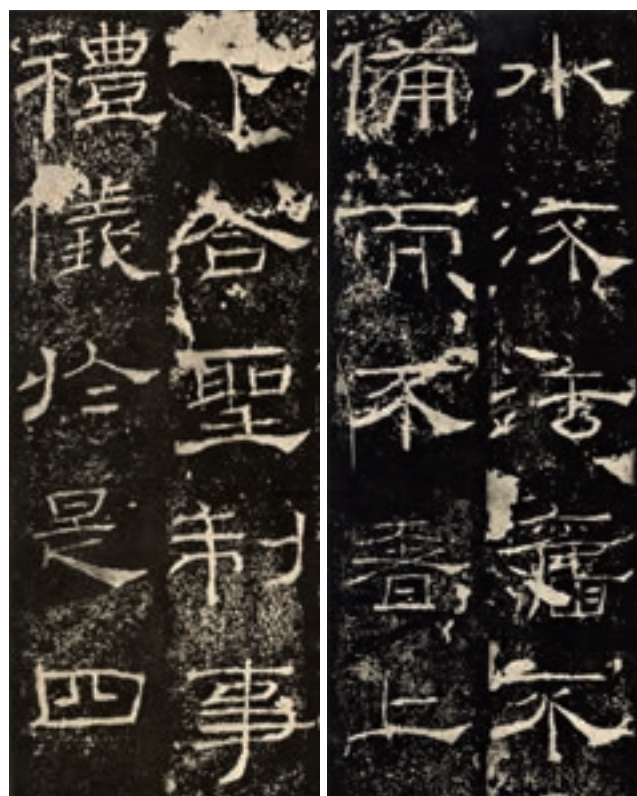 水流法舊不
備而不奢上
下合聖制事
禮儀於是四